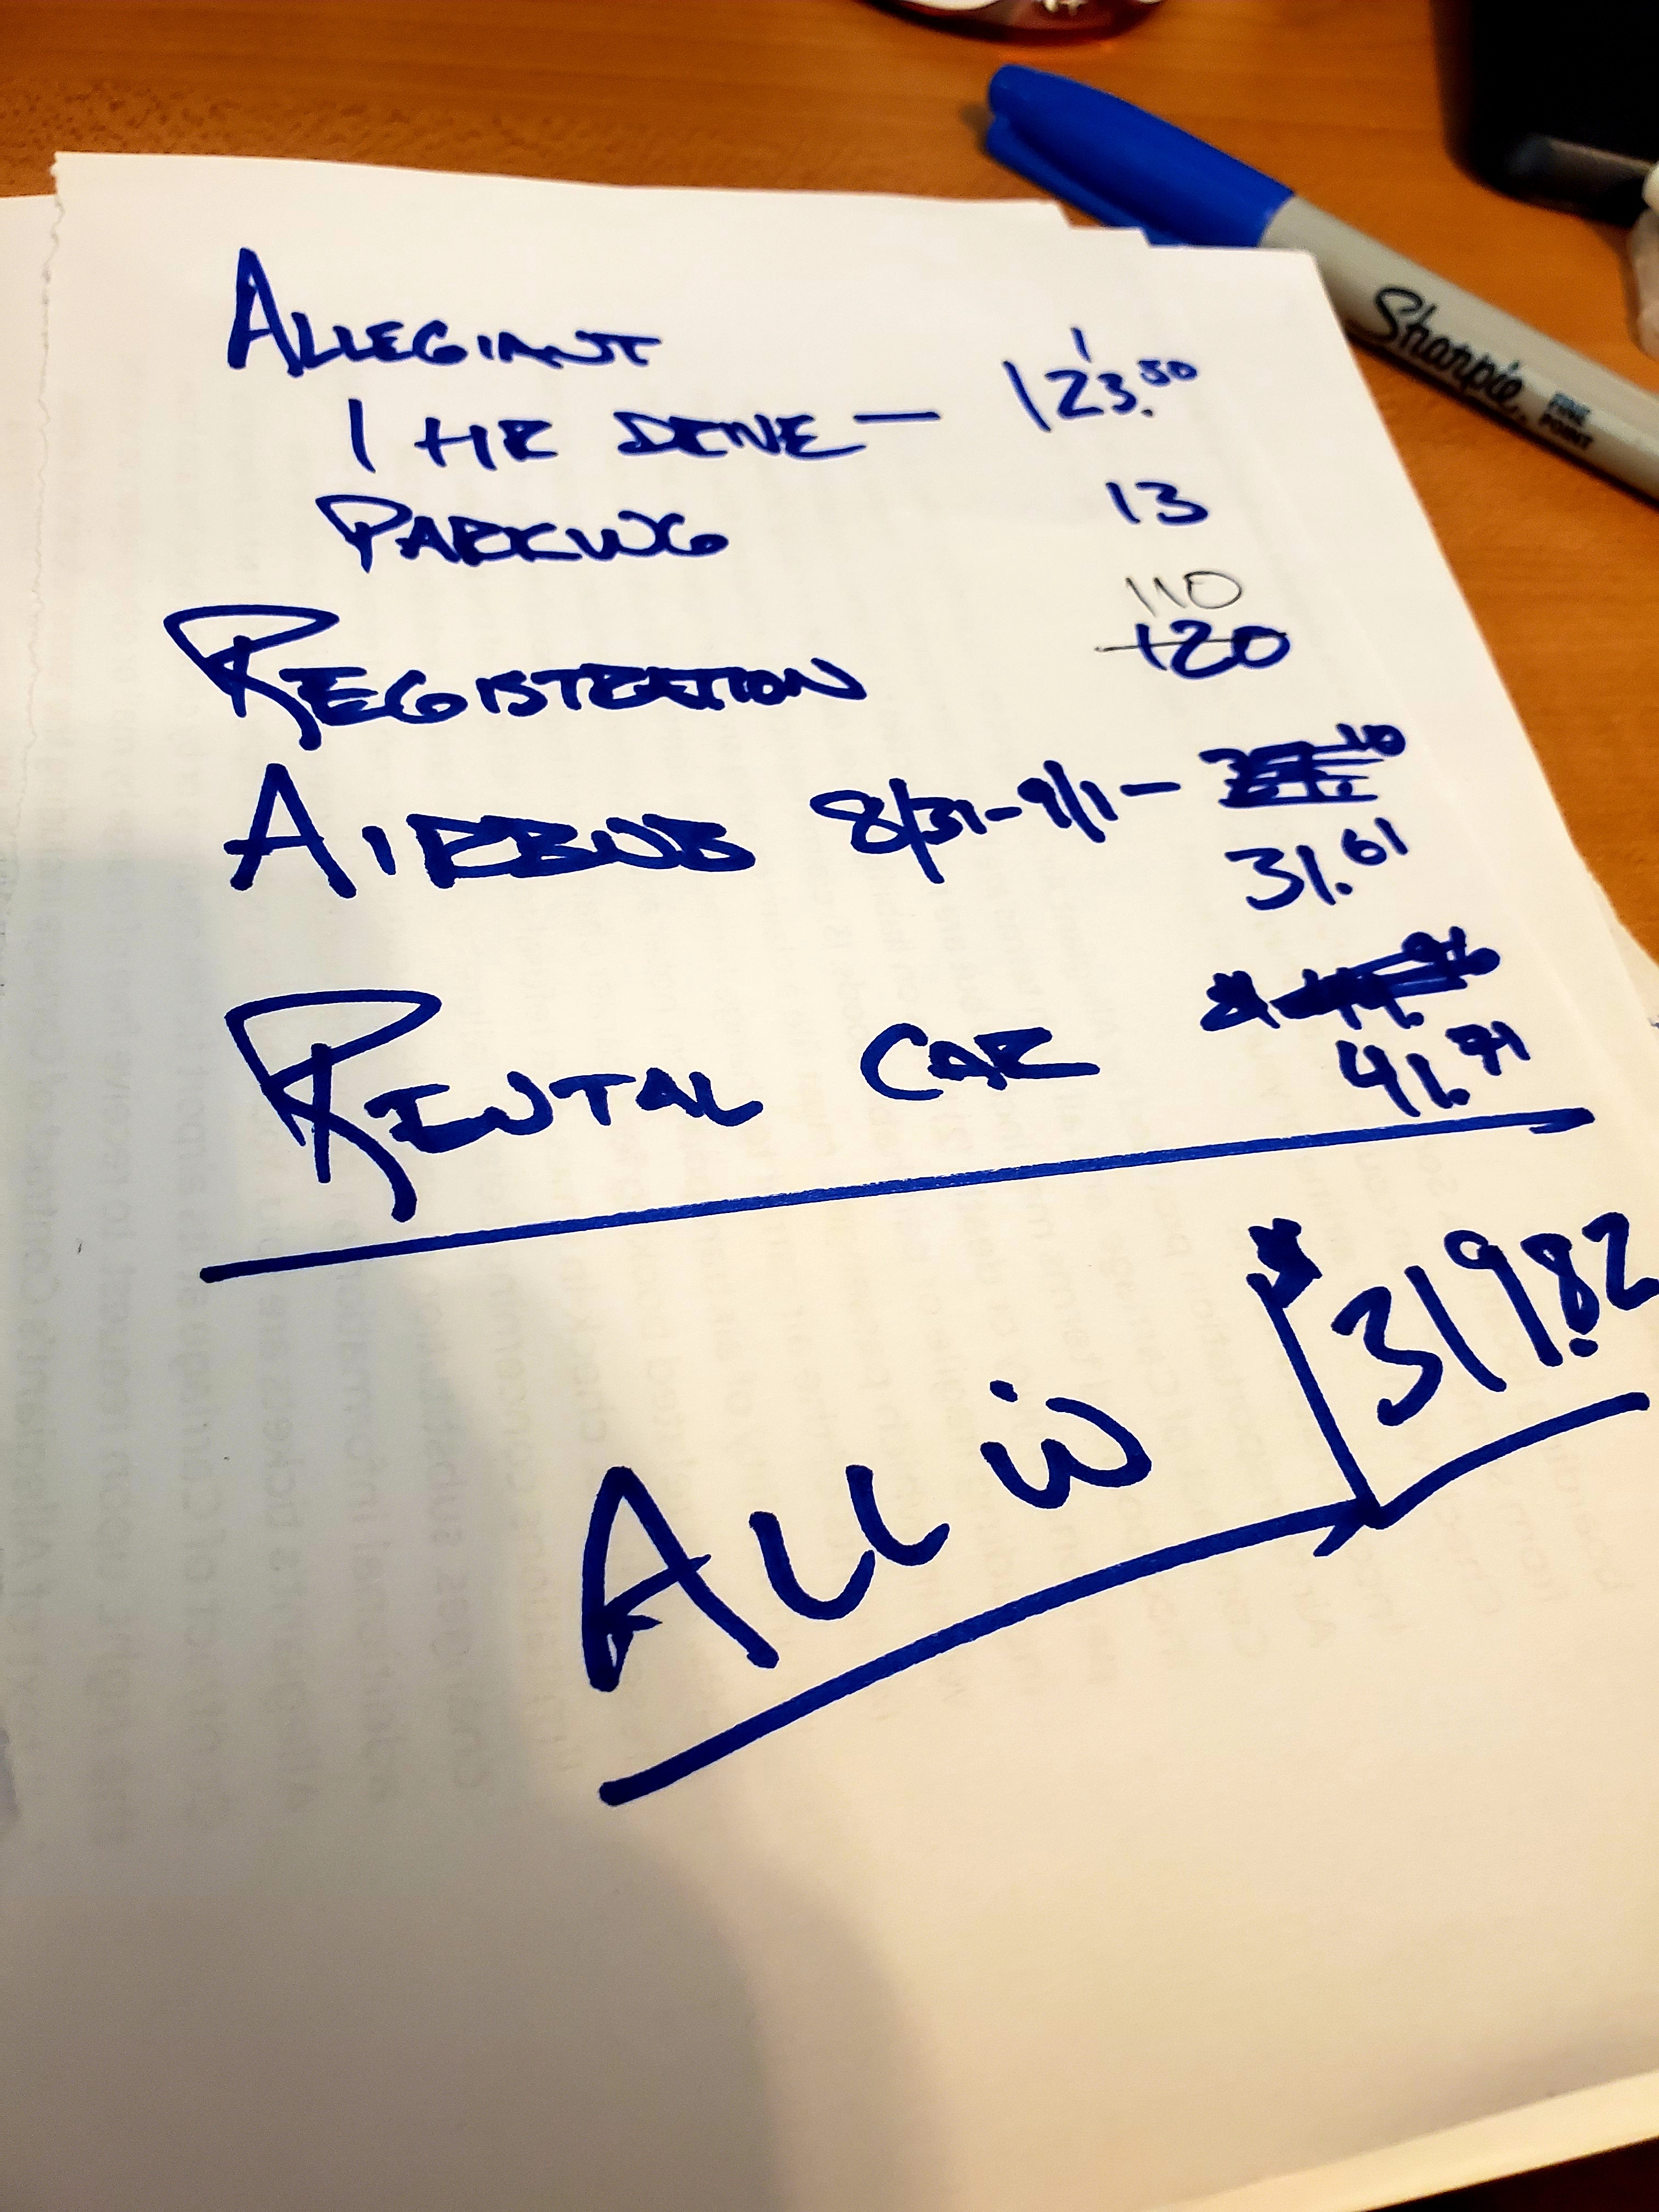 ALLEGIANT
1 HR DRIVE — 123.50
PARKING 13
110
REGISTRATION 120
AIRBNB 8/31-9/1 —
31.61
RENTAL CAR
41.71
ALL in $319.82
Sharpie.
FINE
POINT